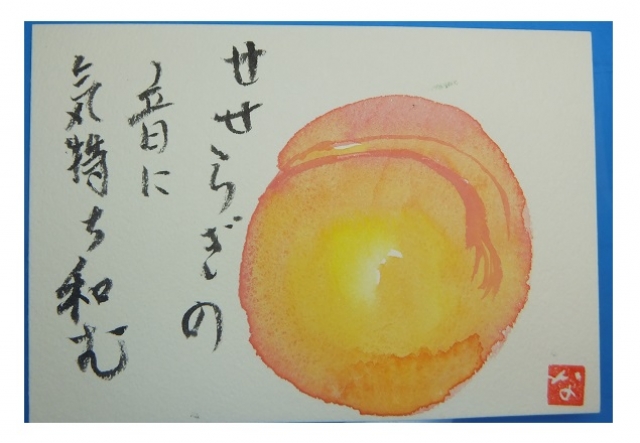 せせらぎの
音に
気持ち和む
な